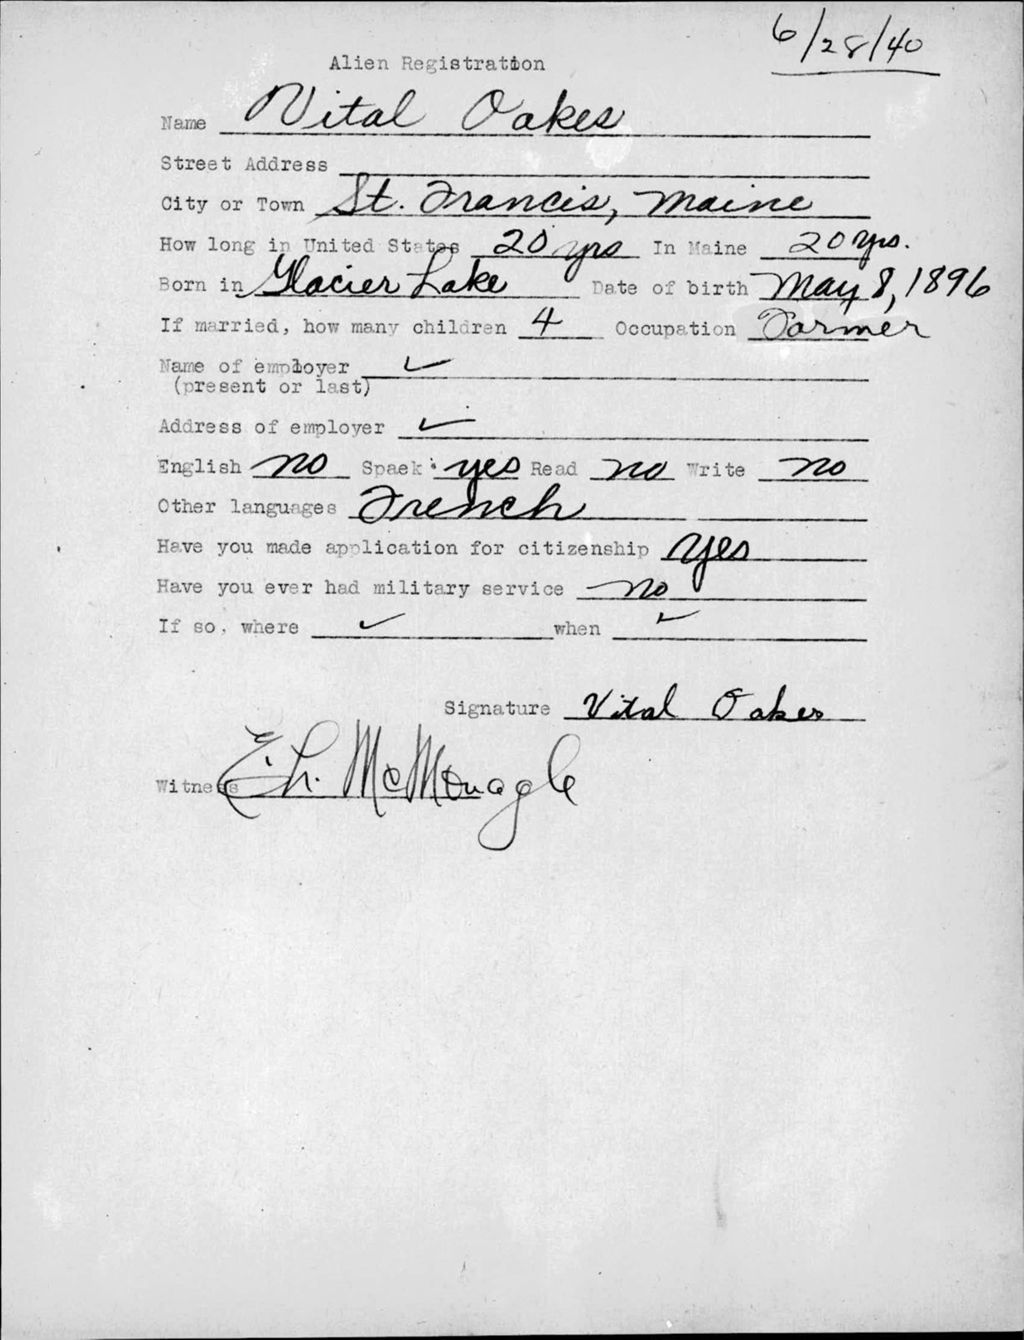 6/28/40
Alien Registration
Name Vital Oakes
Street Address
City or Town St. Francis, Maine
How long in United States 20 yrs In Maine 20 yrs.
Born in Glacier Lake Date of birth May 8, 1896
If married, how many children 4 Occupation Farmer
Name of employer ✓
(present or last)
Address of employer ✓
English no Spaek yes Read no Write no
Other languages French
Have you made application for citizenship yes
Have you ever had military service no
If so, where ✓ when ✓
Signature Vital Oakes
Witness E. L. McMonagle